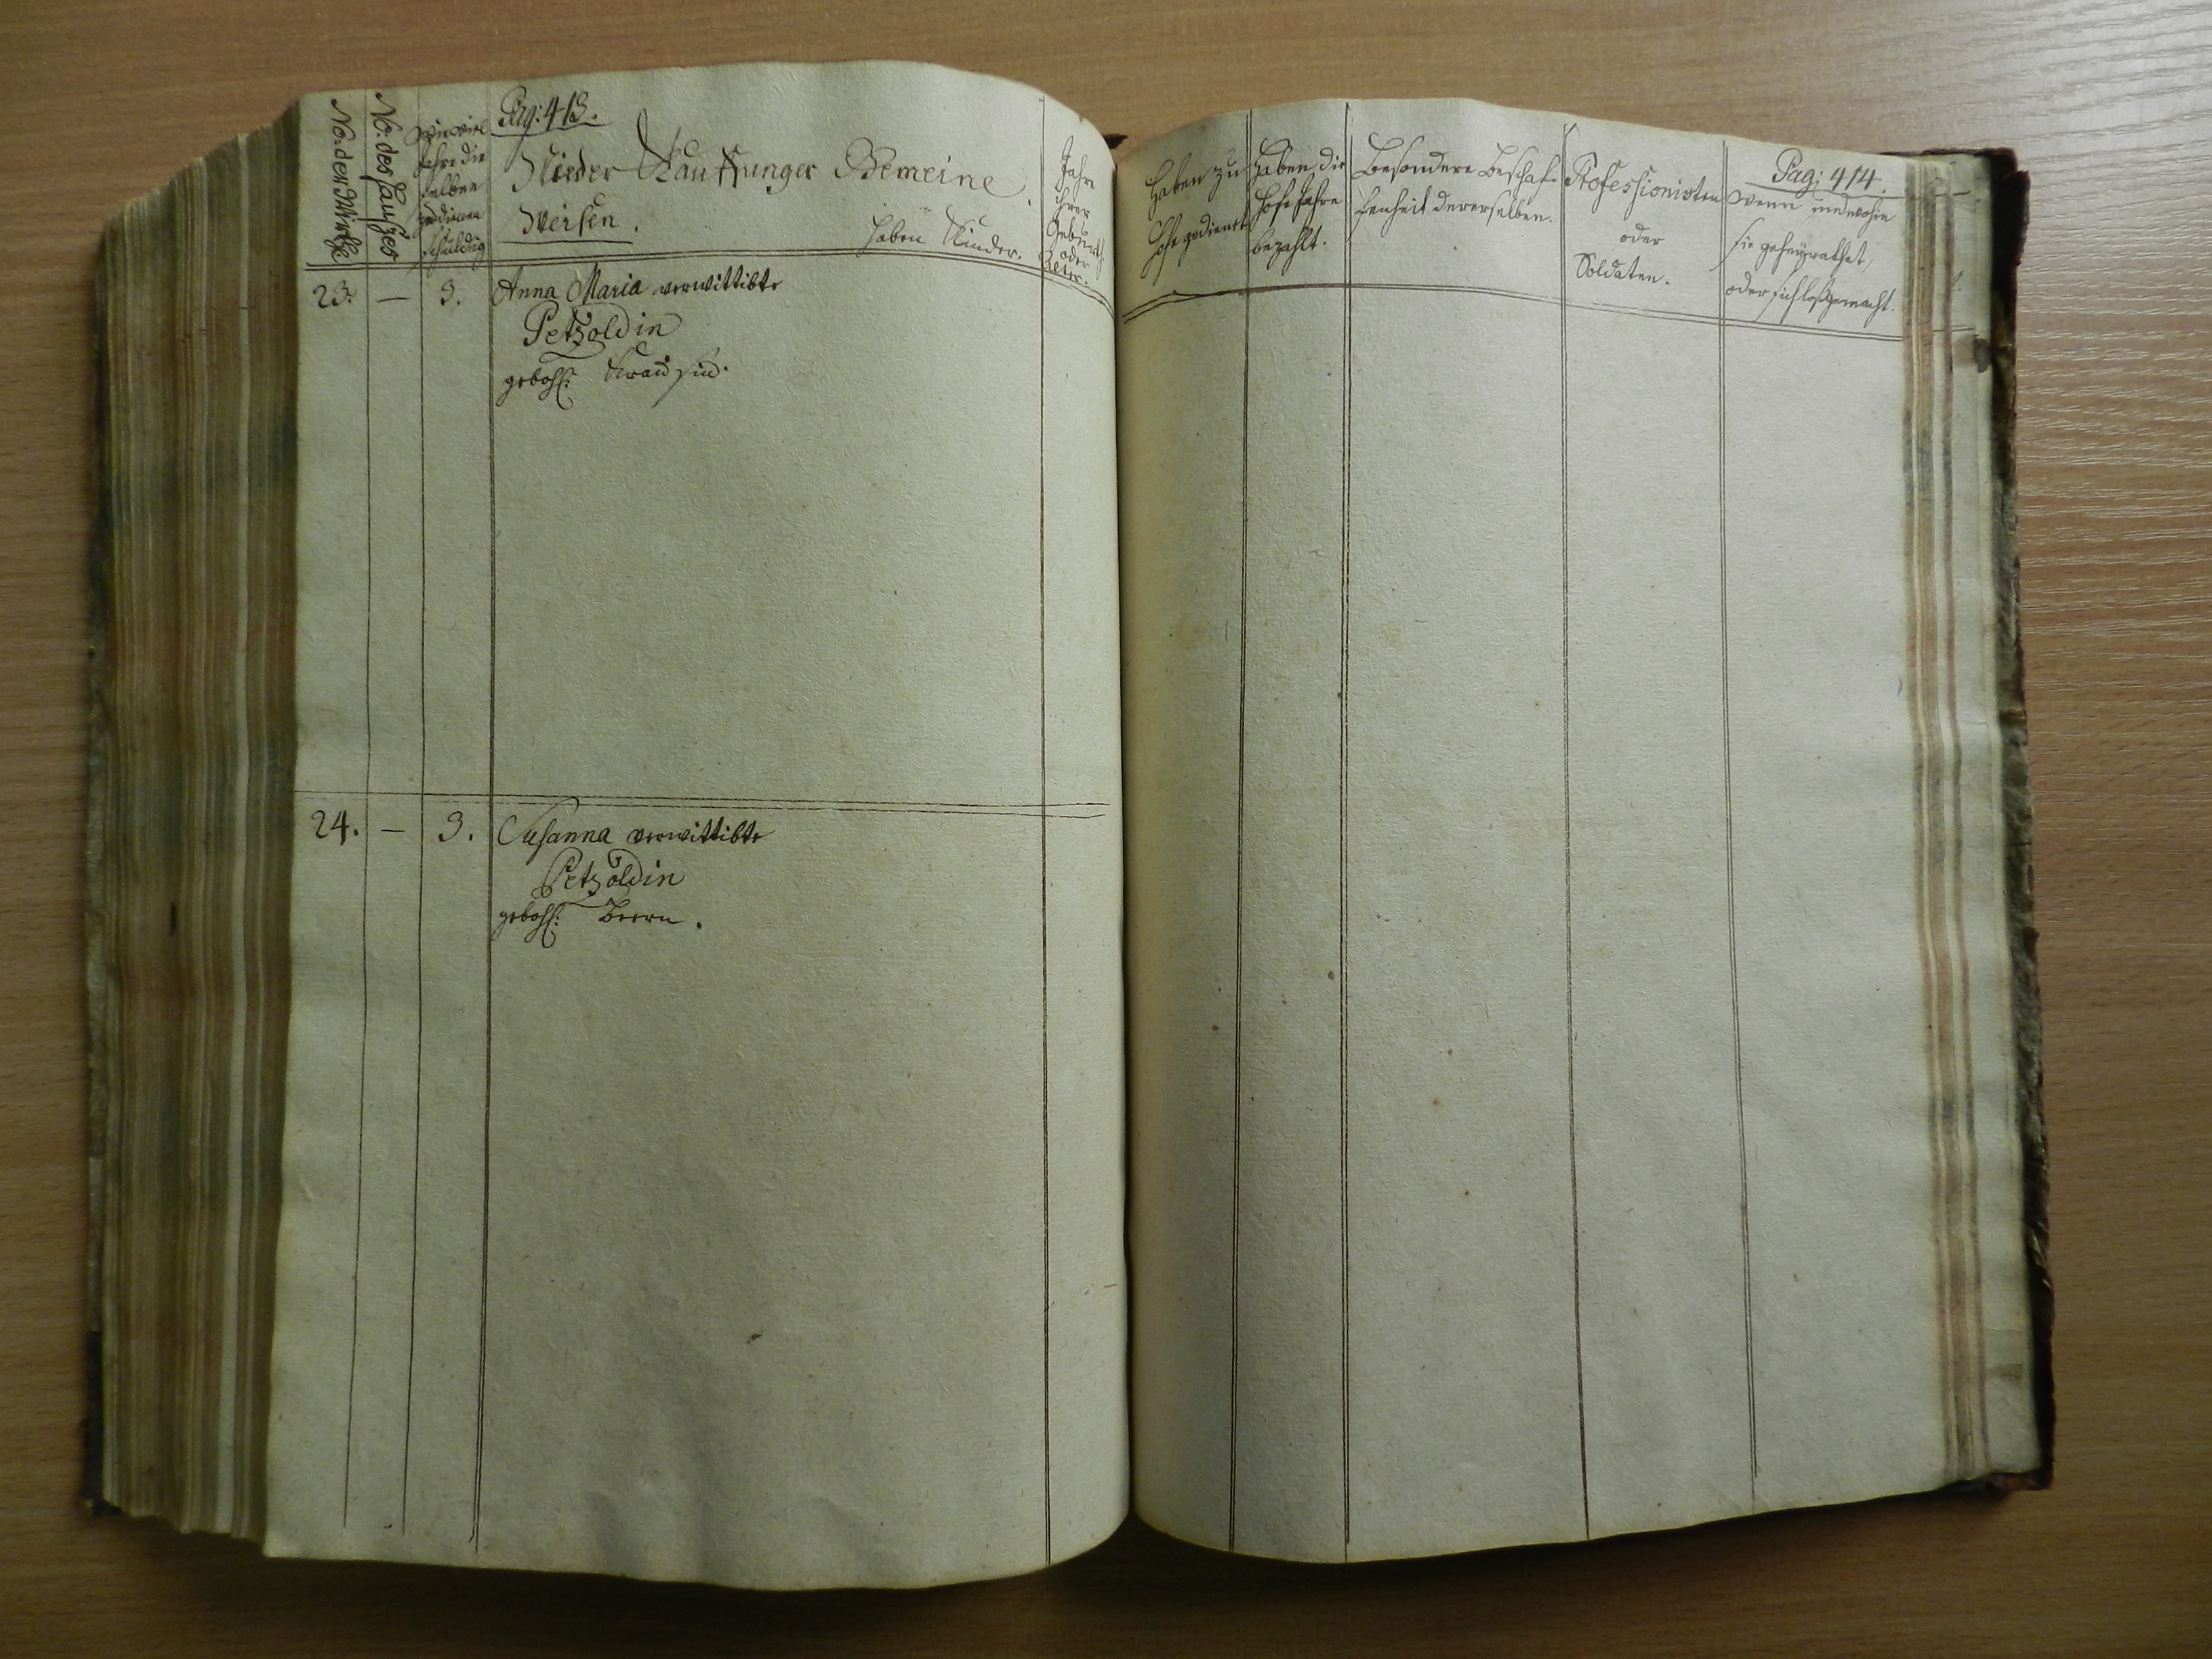 Pag: 413.
No: der Wirthe
No: des Hauses
Wie viel
Jahre die
selben
zu dienen
schuldig
Nieder Kauffunger Gemeine.
Weisen.
haben Kinder.
Jahre
ihrer
Geburth
oder
Alter.
23. — 3. Anna Maria verwittibte
Petzoldin
gebohr:
24. — 3. Susanna verwittibte
Petzoldin
gebohr: Beern.
Pag: 414.
Haben zu
Hofe gedient
Haben die
Hofe Jahre
bezahlt.
Besondere Beschaf-
fenheit dererselben.
Professionisten
oder
Soldaten.
Wenn und wohin
sie geheyrathet,
oder sich loßgemacht.